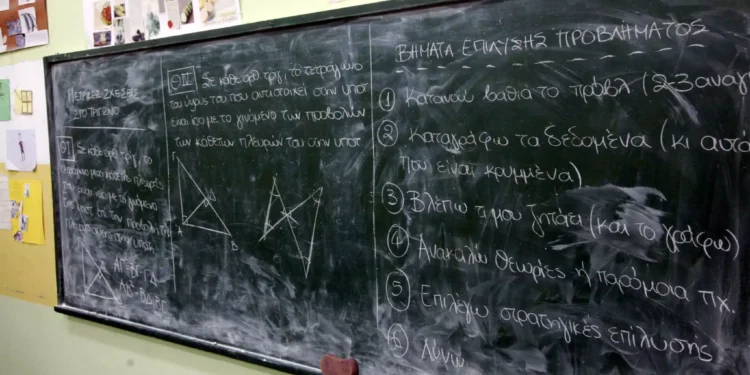 ΜΕΤΡΙΚΕΣ ΣΧΕΣΕΙΣ
ΣΤΟ ΤΡΙΓΩΝΟ
ΘΙ Σε κάθε ορθ τριγ. το
τετράγωνο μιας κάθετης πλευράς
του είναι ίσο με το γινόμενο
ΑΓ²=ΒΓ·ΓΔ
ΑΒ²=ΒΔ·ΒΓ
ΘΙΙ Σε κάθε ορθ τριγ. το τετράγωνο
του ύψους του που αντιστοιχεί στην υποτ
είναι ίσο με το γινόμενο των προβολών
των κάθετων πλευρών του στην υποτ
ΒΗΜΑΤΑ ΕΠΙΛΥΣΗΣ ΠΡΟΒΛΗΜΑΤΟΣ
1 Κατανοώ βαθιά το πρόβλ (2-3 αναγ
2 Καταγράφω τα δεδομένα (κι αυτά
που είναι κρυμμένα)
3 Βλέπω τι μου ζητάει (και το γράφω)
4 Ανακαλώ θεωρίες ή παρόμοια πχ.
5 Επιλέγω στρατηγικές επίλυσης
6 Λύνω